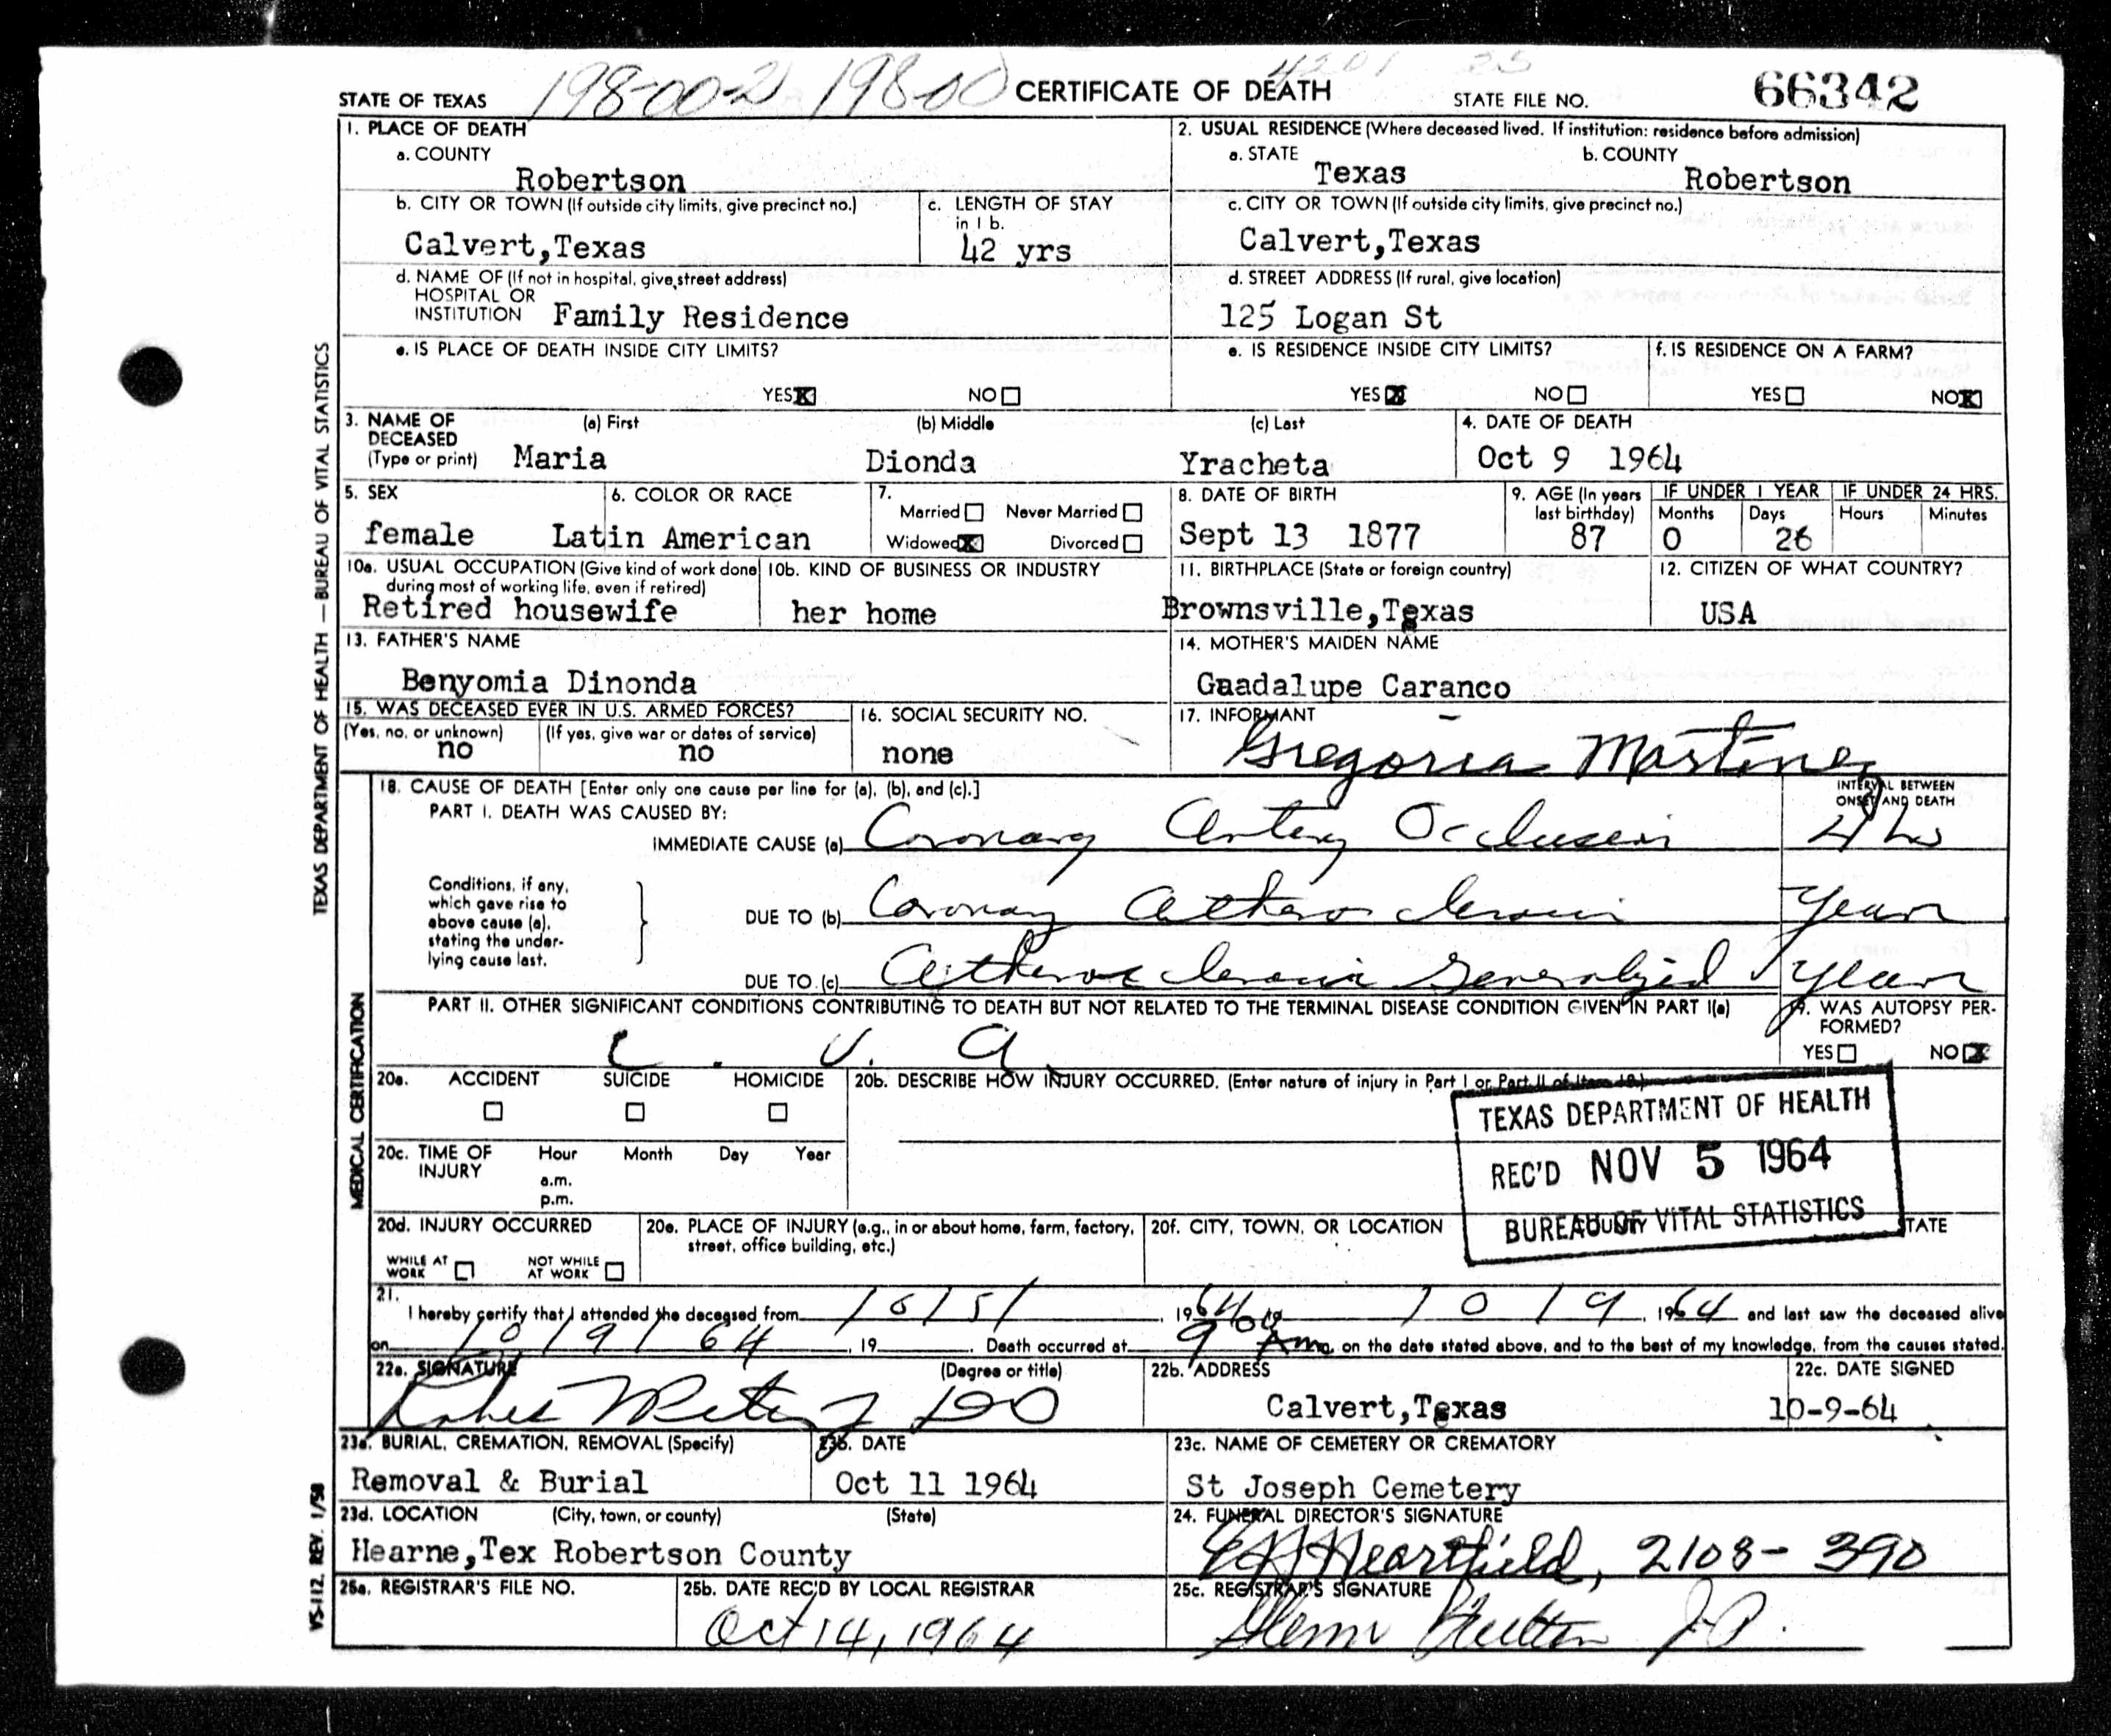 198-00-2 198-00 4201 35
STATE OF TEXAS CERTIFICATE OF DEATH STATE FILE NO. 66342
1. PLACE OF DEATH
a. COUNTY
Robertson
2. USUAL RESIDENCE (Where deceased lived. If institution: residence before admission)
a. STATE b. COUNTY
Texas Robertson
b. CITY OR TOWN (If outside city limits, give precinct no.)
Calvert,Texas
c. LENGTH OF STAY
in 1 b.
42 yrs
c. CITY OR TOWN (If outside city limits, give precinct no.)
Calvert,Texas
d. NAME OF (If not in hospital, give street address)
HOSPITAL OR
INSTITUTION Family Residence
d. STREET ADDRESS (If rural, give location)
125 Logan St
e. IS PLACE OF DEATH INSIDE CITY LIMITS?
YES X NO
e. IS RESIDENCE INSIDE CITY LIMITS?
YES X NO
f. IS RESIDENCE ON A FARM?
YES NO X
3. NAME OF (a) First (b) Middle (c) Last
DECEASED
(Type or print) Maria Dionda Yracheta
4. DATE OF DEATH
Oct 9 1964
5. SEX
female
6. COLOR OR RACE
Latin American
7.
Married Never Married
Widowed X Divorced
8. DATE OF BIRTH
Sept 13 1877
9. AGE (In years
last birthday)
87
IF UNDER 1 YEAR IF UNDER 24 HRS.
Months Days Hours Minutes
0 26
10a. USUAL OCCUPATION (Give kind of work done
during most of working life, even if retired)
Retired housewife
10b. KIND OF BUSINESS OR INDUSTRY
her home
11. BIRTHPLACE (State or foreign country)
Brownsville,Texas
12. CITIZEN OF WHAT COUNTRY?
USA
13. FATHER'S NAME
Benyomia Dinonda
14. MOTHER'S MAIDEN NAME
Guadalupe Caranco
15. WAS DECEASED EVER IN U.S. ARMED FORCES?
(Yes, no, or unknown) (If yes, give war or dates of service)
no no
16. SOCIAL SECURITY NO.
none
17. INFORMANT
Gregoria Martinez
18. CAUSE OF DEATH [Enter only one cause per line for (a), (b), and (c).]
PART I. DEATH WAS CAUSED BY:
INTERVAL BETWEEN
ONSET AND DEATH
IMMEDIATE CAUSE (a) Coronary Artery Occlusion
Conditions, if any,
which gave rise to
above cause (a),
stating the under-
lying cause last.
DUE TO (b) Coronary Atherosclerosis Years
DUE TO (c) Atherosclerosis Generalized Years
PART II. OTHER SIGNIFICANT CONDITIONS CONTRIBUTING TO DEATH BUT NOT RELATED TO THE TERMINAL DISEASE CONDITION GIVEN IN PART I(a)
C. V. A.
19. WAS AUTOPSY PER-
FORMED?
YES NO X
20a. ACCIDENT SUICIDE HOMICIDE
20b. DESCRIBE HOW INJURY OCCURRED. (Enter nature of injury in Part I or Part II of Item 18.)
TEXAS DEPARTMENT OF HEALTH
REC'D NOV 5 1964
BUREAU OF VITAL STATISTICS
20c. TIME OF Hour Month Day Year
INJURY
a.m.
p.m.
20d. INJURY OCCURRED
WHILE AT NOT WHILE
WORK AT WORK
20e. PLACE OF INJURY (e.g., in or about home, farm, factory,
street, office building, etc.)
20f. CITY, TOWN, OR LOCATION COUNTY STATE
21.
I hereby certify that I attended the deceased from 10/5/, 1964 to 10/9, 1964 and last saw the deceased alive
on 10/9/64, 19 . Death occurred at 9 Am on the date stated above, and to the best of my knowledge, from the causes stated.
22a. SIGNATURE (Degree or title)
DO
22b. ADDRESS
Calvert,Texas
22c. DATE SIGNED
10-9-64
23a. BURIAL, CREMATION, REMOVAL (Specify)
Removal & Burial
23b. DATE
Oct 11 1964
23c. NAME OF CEMETERY OR CREMATORY
St Joseph Cemetery
23d. LOCATION (City, town, or county) (State)
Hearne,Tex Robertson County
24. FUNERAL DIRECTOR'S SIGNATURE
Heartfield, 2108-390
25a. REGISTRAR'S FILE NO.
25b. DATE REC'D BY LOCAL REGISTRAR
Oct 14, 1964
25c. REGISTRAR'S SIGNATURE
J.P.
TEXAS DEPARTMENT OF HEALTH — BUREAU OF VITAL STATISTICS
MEDICAL CERTIFICATION
VS-112. REV. 1/58